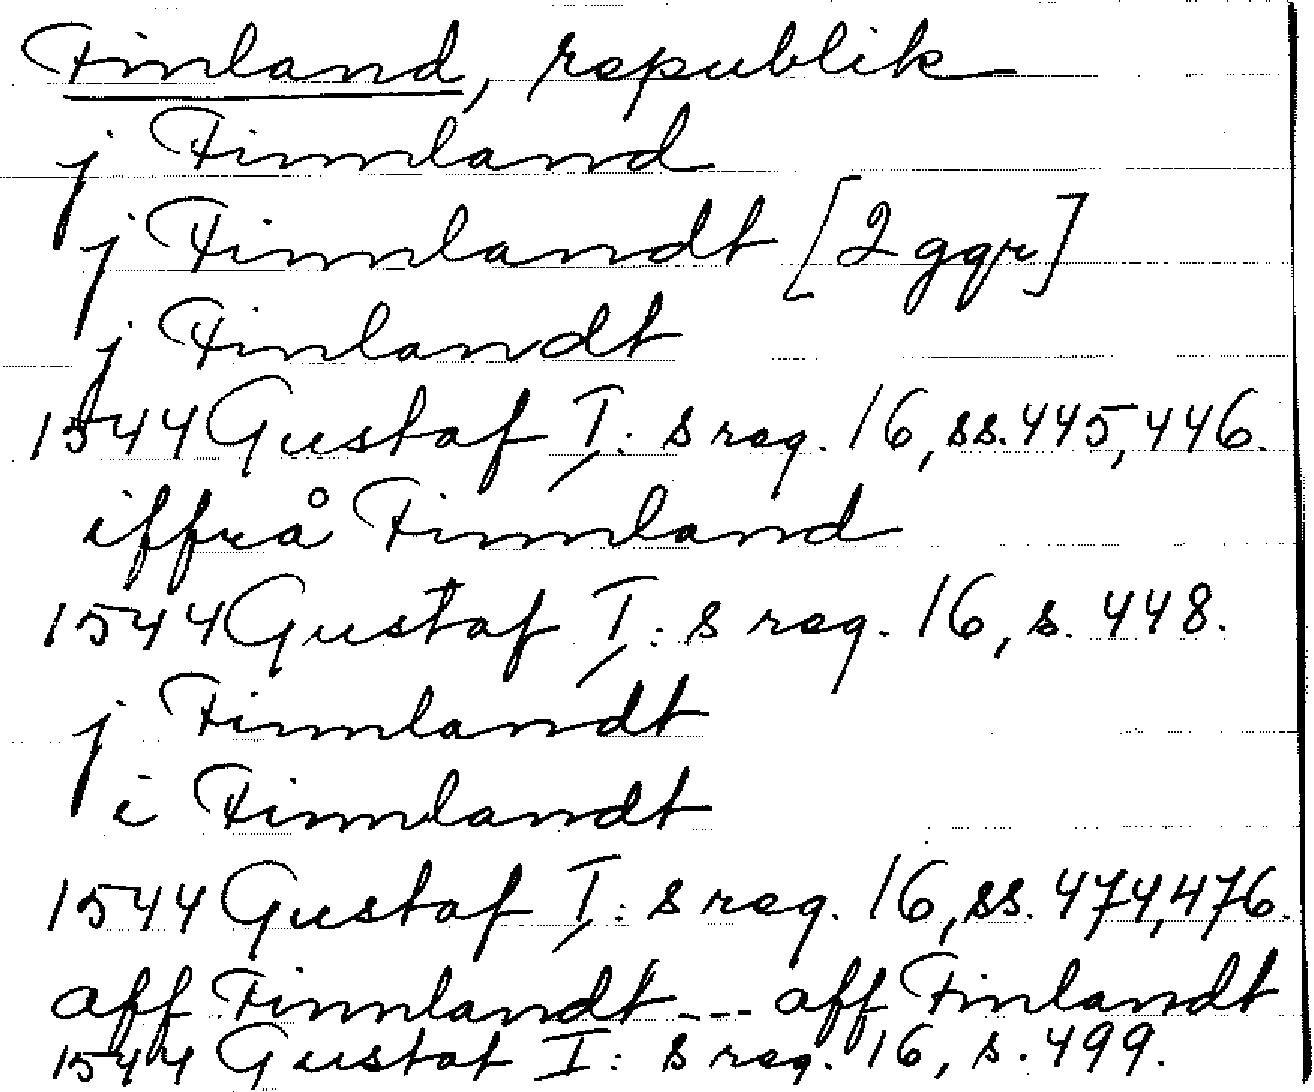 Finland, republik
j Finnland
j Finnlandt [2 ggr]
j Finlandt
1544 Gustaf I:s reg. 16, ss. 445, 446.
iffrå Finnland
1544 Gustaf I:s reg. 16, s. 448.
j Finnlandt
i Finnlandt
1544 Gustaf I:s reg. 16, ss. 474, 476.
aff Finnlandt --- aff Finlandt
1544 Gustaf I:s reg. 16, s. 499.